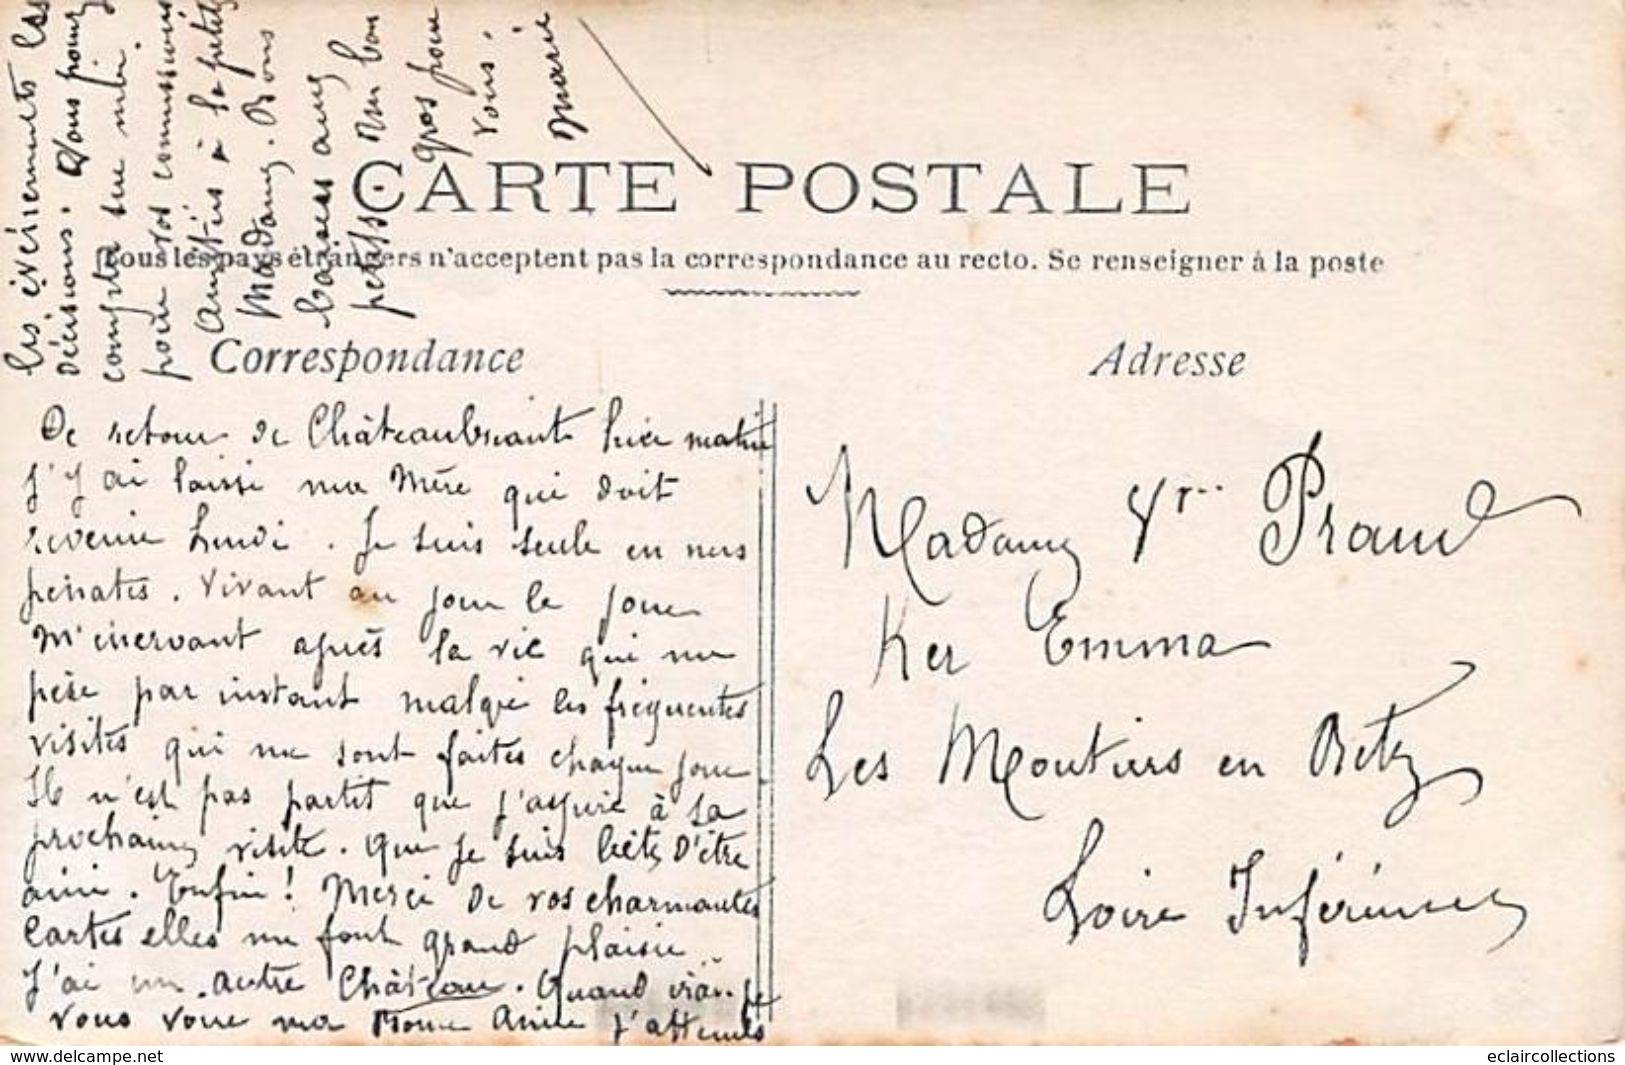 CARTE POSTALE
Tous les pays étrangers n'acceptent pas la correspondance au recto. Se renseigner à la poste
Correspondance
Adresse
De retour de Châteaubriant hier matin
j'y ai laissé ma Mère qui doit
revenir Lundi. Je suis seule en mes
penates. Vivant au jour le jour
M'énervant après la vie qui me
pèse par instant malgré les fréquentes
visites qui me sont faites chaque jour.
Il n'est pas partit que j'aspire à sa
prochaine visite. Que je suis bête d'être
ainsi. Enfin! Merci de vos charmantes
Cartes elles me font grand plaisir
J'ai un autre Château. Quand irai-je
vous voir ma Bonne Amie j'attends
les événements les
décisions. Vous pouvez
compter sur moi
pour vos commissions
Amitiés à la petite
Madame. Bons
baisers aux
petits. Un bon
gros pour
vous.
Marie
Madame Vve Praud
Ker Emma
Les Moutiers en Retz
Loire Inférieure
eclaircollections
delcampe.net